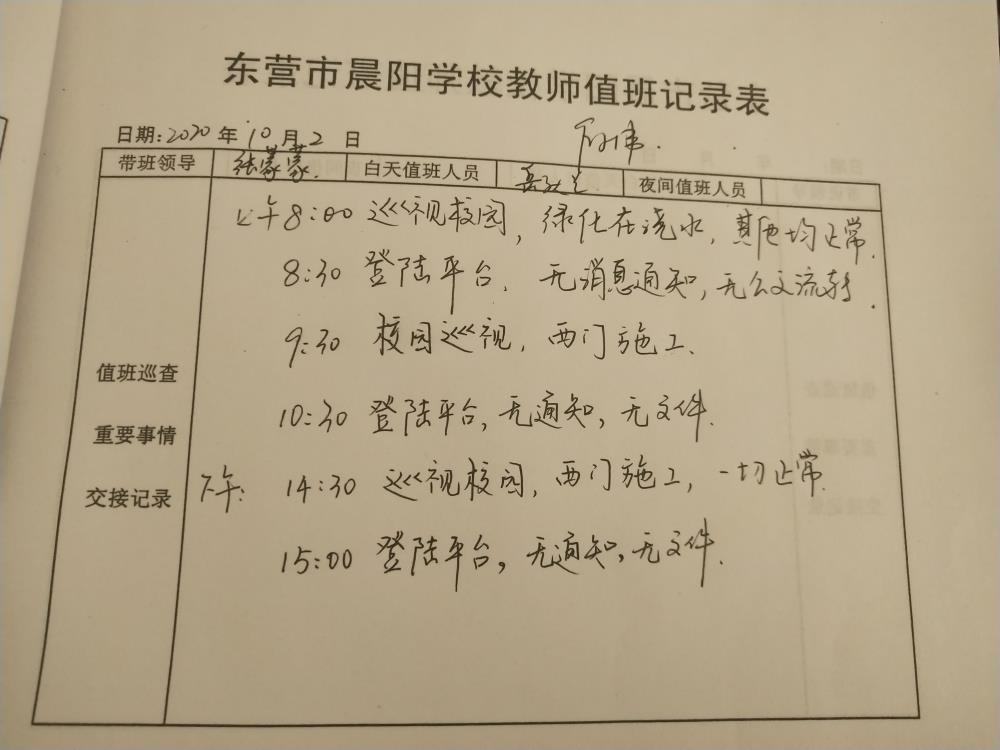 东营市晨阳学校教师值班记录表
日期:2020年10月2日
带班领导 张蒙蒙. 白天值班人员 夜间值班人员
上午8:00 巡视校园,绿化在浇水,其他均正常.
8:30 登陆平台.无消息通知,无公文流转.
9:30 校园巡视,西门施工.
值班巡查
重要事情
交接记录
10:30 登陆平台,无通知,无文件.
下午: 14:30 巡视校园,西门施工,一切正常.
15:00 登陆平台,无通知,无文件.